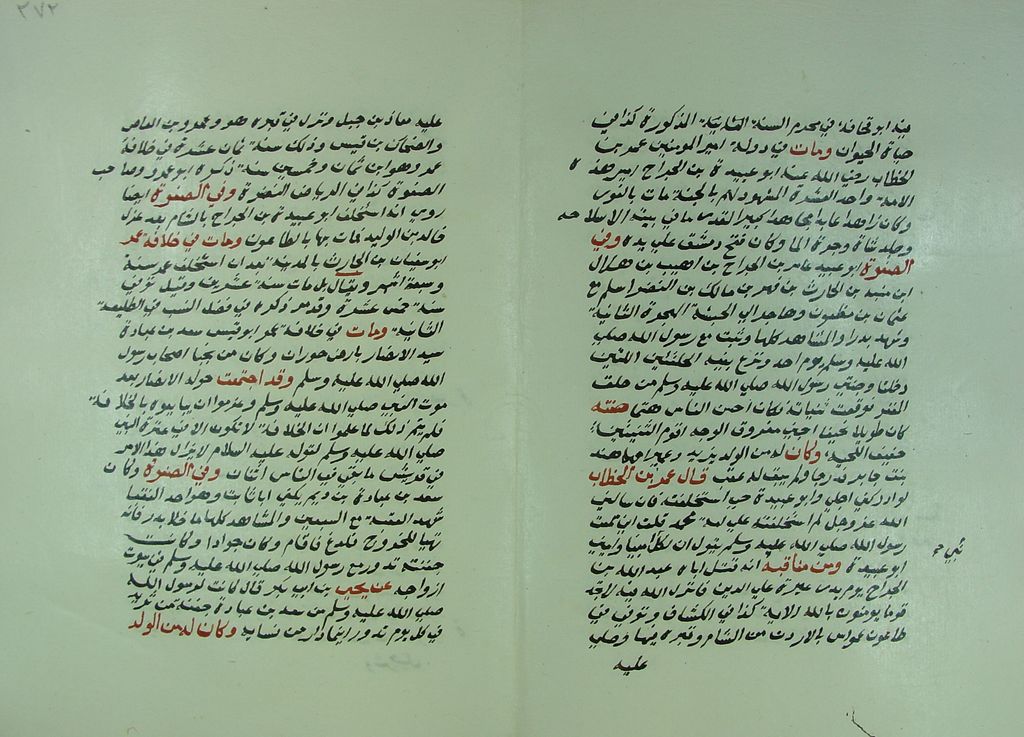 بيه ابو قحافة في محرم السنة الثانية المذكورة كذا في
حياة الحيوان ومات في دولة امير المومنين عمر بن
الخطاب رضي الله عنه ابو عبيدة بن الجراح امير هذه
الامة واحد العشرة المشهود لهم بالجنة مات بالقوس
وكان زاهدا عابدا مجاهدا كبير القدر ما في بيته الا سلاحه
وجلد شاة وجرة الما وكان فتح دمشق علي يده وفي
الصفوة ابو عبيدة عامر بن الجراح بن اهيب بن هلال
ابن منبه بن الحارث بن فهر بن مالك بن النضر اسلم مع
عثمان بن مظعون وهاجر الي الحبشة الهجرة الثانية
وشهد بدرا والمشاهد كلها وثبت مع رسول الله صلي
الله عليه وسلم يوم احد ونزع بفيه الحلقتين اللتين
دخلتا وجنتي رسول الله صلي الله عليه وسلم من حلق
المغفر فوقعت ثنيتاه فكان احسن الناس هتما صفته
كان طويلا نحيفا اجنى معروق الوجه اثرم الثنيتين
خفيف اللحية وكان له من الولد يزيد وعمير امهما هند
بنت جابر فدرجا ولم يبق له عقب قال عمر بن الخطاب
لو ادركني اجلي وابو عبيدة حي استخلفته فان سالني
الله عز وجل لم استخلفته علي امة محمد قلت اني سمعت
رسول الله صلي الله عليه وسلم يقول ان لكل امينا واميني
ابو عبيدة ومن مناقبه انه قتل اباه عبد الله بن
الجراح يوم بدر غيرة علي الدين فانزل الله فيه لا تجد
قوما يومنون بالله الاية كذا في الكشاف وتوفي في
طاعون عمواس بالاردن من الشام وقبره فيها وصلي
عليه
عليه معاذ بن جبل ونزل في قبره هو وعمرو بن العاص
والضحاك بن قيس وذلك سنة ثمان عشرة في خلافة
عمر وهو ابن ثمان وخمسين سنة ذكره ابو عمرو وصاحب
الصفوة كذا في الرياض النضرة وفي الصفوة ايضا
روي انه استخلف ابو عبيدة بن الجراح بالشام بعد عزل
خالد بن الوليد فمات بها بالطاعون ومات في خلافة عمر
ابو سفيان بن الحارث بالمدينة بعد ان استخلف عمر بسنة
وسبعة اشهر ويقال بل مات سنة عشرين وقيل توفي
سنة خمس عشرة وقد مر ذكره في فصل النسب في الطليعة
الثانية ومات في خلافة عمر ابو قيس سعد بن عبادة
سيد الانصار بارض حوران وكان من نجبا اصحاب رسول
الله صلي الله عليه وسلم وقد اجتمعت حوله الانصار بعد
موت النبي صلي الله عليه وسلم وعزموا ان يبايعوه بالخلافة
فلم يتم ذلك لما علموا ان الخلافة لا تكون الا في عترة النبي
صلي الله عليه وسلم لقوله عليه السلام لا يزال هذا الامر
في قريش ما بقي في الناس اثنان وفي الصفوة وكان
سعد بن عبادة بن دليم يكني ابا ثابت وهو احد النقبا
شهد العقبة مع السبعين والمشاهد كلها ما خلا بدر فانه
تهيا للخروج فلدغ فاقام وكان جوادا وكانت
جفنته تدور مع رسول الله صلي الله عليه وسلم في بيوت
ازواجه عن يحيي بن ابي بكر قال كانت لرسول الله
صلي الله عليه وسلم من سعد بن عبادة جفنة من ثريد
في كل يوم تدور اينما دار من نسايه وكان له من الولد
٣٧٢